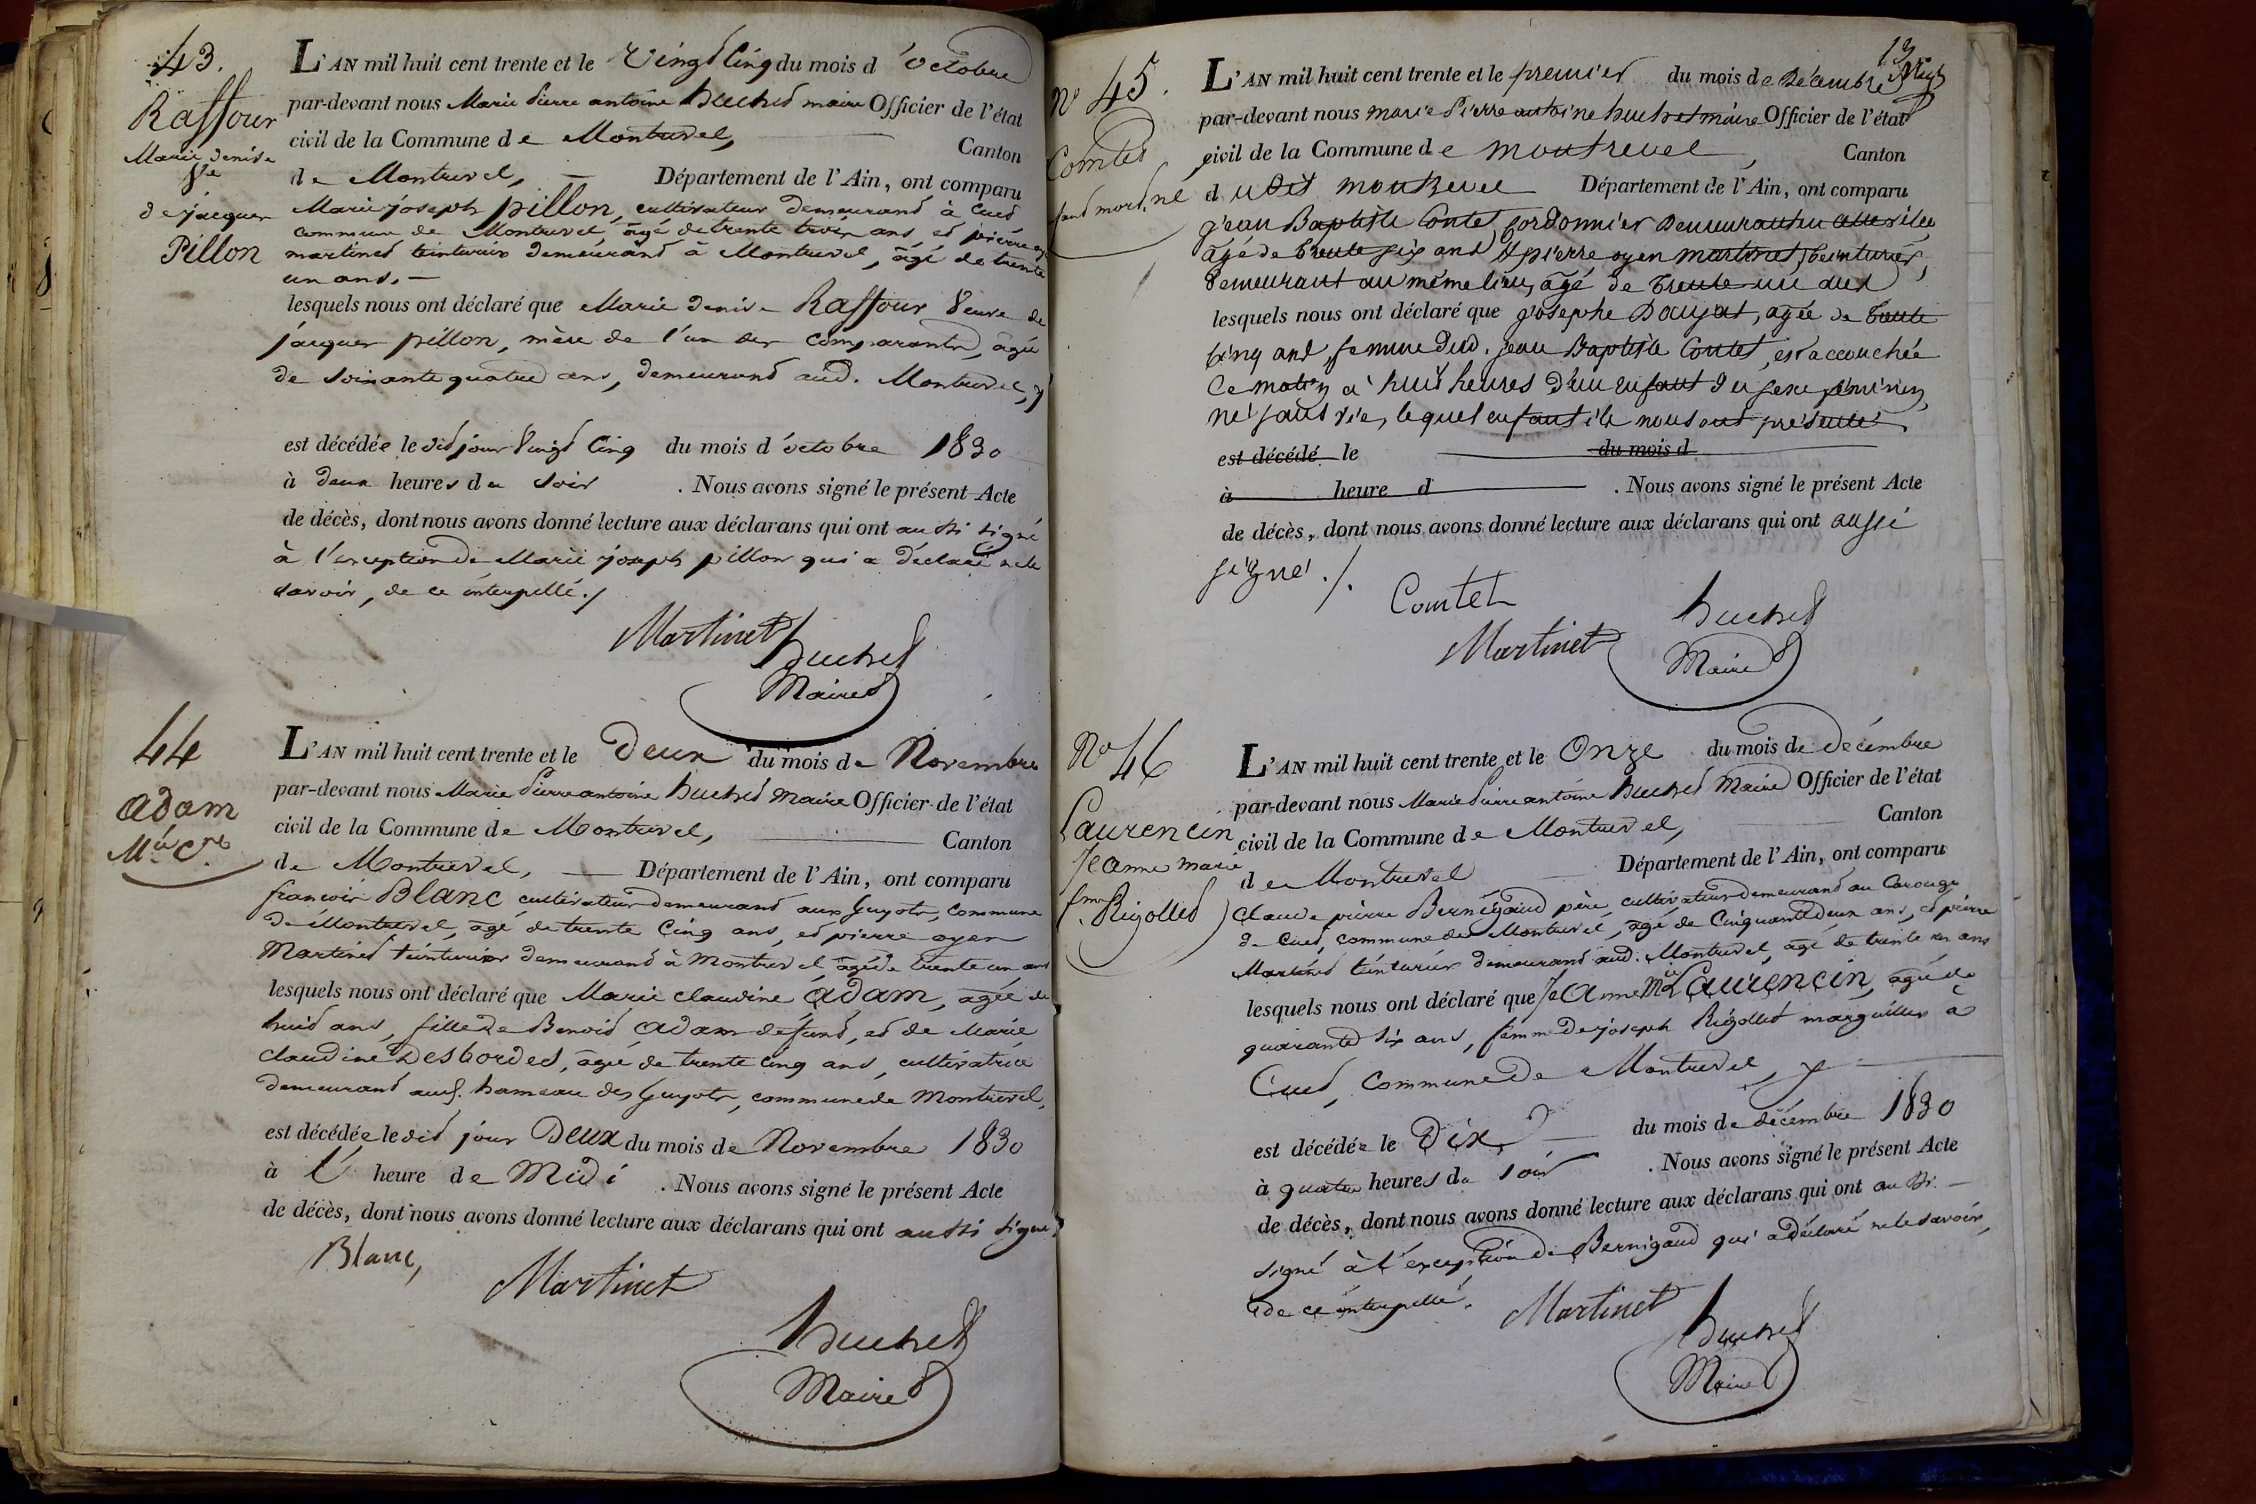 43.
Raffour
Marie denise
Ve
de jacques
Pillon
L'AN mil huit cent trente et le Vingt Cinq du mois d'octobre
par-devant nous Marie Pierre antoine huchet maire Officier de l'état
civil de la Commune de Montrevel, Canton
de Montrevel, Département de l'Ain, ont comparu
Marie joseph pillon, cultivateur demeurant à Cuet
commune de Montrevel âgé de trente trois ans et pierre oyen
martinet teinturier demeurant à Montrevel, âgé de trente
un ans.
lesquels nous ont déclaré que Marie denise Raffour Veuve de
jacques pillon, mère de l'un des comparants, âgée
de soixante quatre ans, demeurant aud. Montrevel,
est décédée le dit jour Vingt Cinq du mois d'octobre 1830
à deux heures du soir . Nous avons signé le présent Acte
de décès, dont nous avons donné lecture aux déclarans qui ont aussi signé
à l'exception de Marie joseph pillon qui a déclaré ne le
savoir, de ce interpellé./
Martinet huchet
Maire
44
adam
Mie Cne
L'AN mil huit cent trente et le Deux du mois de Novembre
par-devant nous Marie Pierre antoine huchet Maire Officier de l'état
civil de la Commune de Montrevel, Canton
de Montrevel, Département de l'Ain, ont comparu
francois Blanc cultivateur demeurant aux Guyots, commune
de Montrevel, âgé de trente Cinq ans, et pierre oyen
Martinet teinturier demeurant à Montrevel âgé de trente un ans
lesquels nous ont déclaré que Marie claudine adam, agée de
huit ans, fille de Benoit adam défunt, et de Marie
claudine Desbordes, agée de trente cinq ans, cultivatrice
demeurant aud. hameau des Guyots, commune de Montrevel,
est décédée le dit jour Deux du mois de Novembre 1830
à l' heure de Midi . Nous avons signé le présent Acte
de décès, dont nous avons donné lecture aux déclarans qui ont aussi signé
Blanc,
Martinet
huchet
Maire
13
No 45.
Comtet
enfant mort né
L'AN mil huit cent trente et le premier du mois de Décembre
par-devant nous marie Pierre antoine huchet maire Officier de l'état
civil de la Commune de montrevel, Canton
dudit montrevel Département de l'Ain, ont comparu
jean Baptiste Comtet, Cordonnier Demeurant en cette ville
âgé de trente six ans & pierre oyen martinet, teinturier,
demeurant au même lieu, âgé de trente un ans
lesquels nous ont déclaré que josephe Daujat, agée de trente
cinq ans, femme dud. jean Baptiste Comtet, est accouchée
Ce matin à huit heures d'un enfant du sexe féminin,
né sans vie, lequel enfant ils nous ont présenté
est décédé le du mois d
à heure d . Nous avons signé le présent Acte
de décès, dont nous avons donné lecture aux déclarans qui ont aussi
signé./.
Comtet huchet
Martinet Maire
No 46
Laurencin
Jeanne marie
fme
Rigollet
L'AN mil huit cent trente et le Onze du mois de décembre
par-devant nous Marie Pierre antoine huchet Maire Officier de l'état
civil de la Commune de Montrevel, Canton
de Montrevel Département de l'Ain, ont comparu
Claude pierre Bernigaud père, cultivateur demeurant au Carouge
de Cuet, commune de Montrevel, âgé de Cinquante deux ans, et pierre
Martinet teinturier demeurant aud. Montrevel, agé de trente un ans
lesquels nous ont déclaré que Jeanne Mie Laurencin, agée de
quarante six ans, femme de joseph Rigollet marguillier à
Cuet, commune de Montrevel,
est décédée le Dix du mois de décembre 1830
à quatre heures du soir . Nous avons signé le présent Acte
de décès, dont nous avons donné lecture aux déclarans qui ont aussi
signé à l'exception de Bernigaud qui a déclaré ne le savoir,
de ce interpellé.
Martinet huchet
Maire